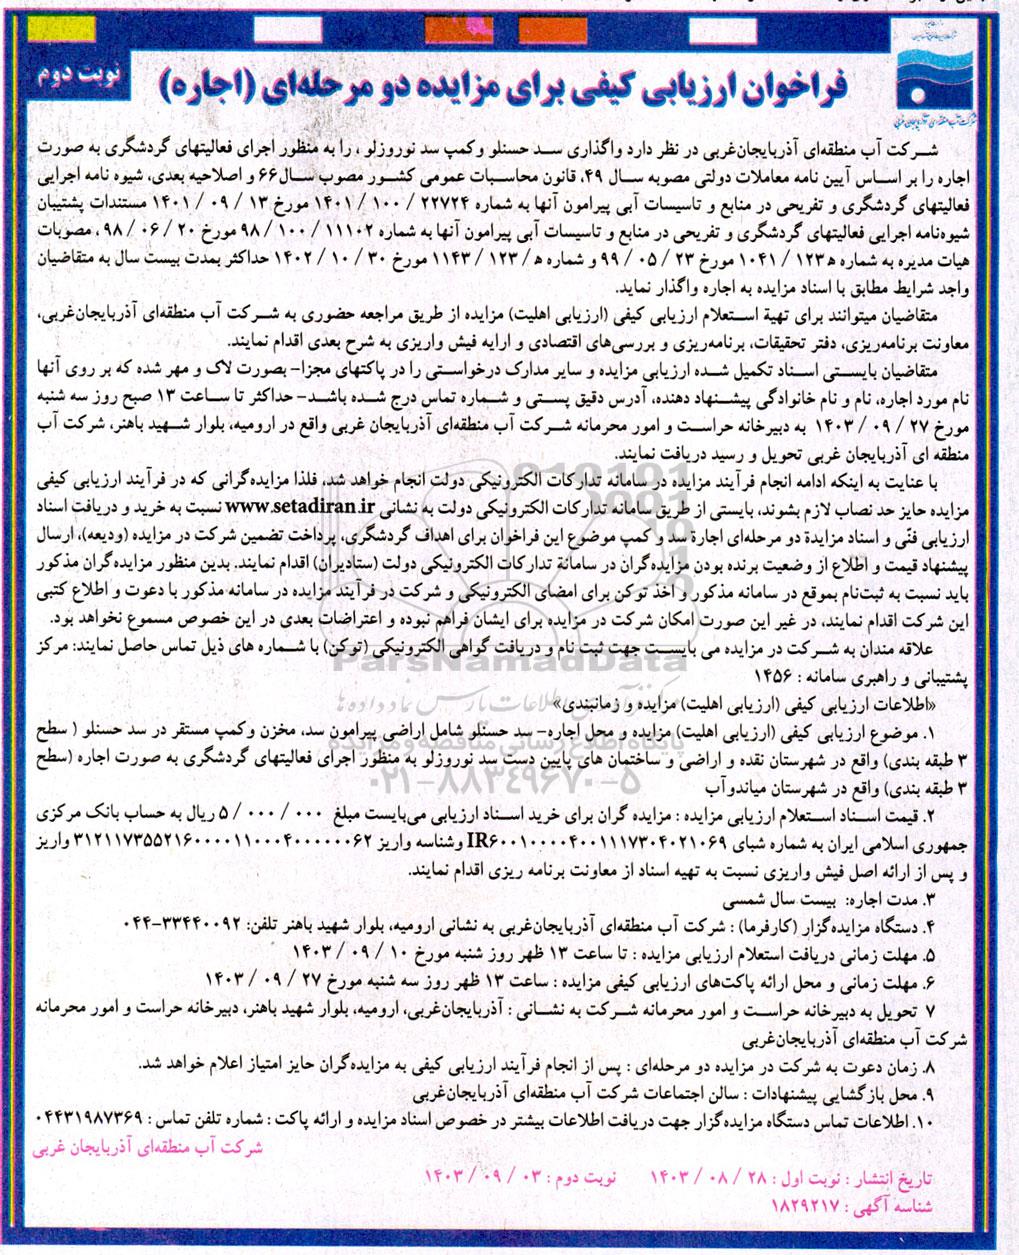 شرکت آب منطقه‌ای آذربایجان غربی
نوبت دوم
فراخوان ارزیابی کیفی برای مزایده دو مرحله‌ای (اجاره)
شـرکت آب منطقه‌ای آذربایجان‌غربی در نظر دارد واگذاری سـد حسنلو وکمپ سد نوروزلو ، را به منظور اجرای فعالیتهای گردشگری به صورت
اجاره را بر اساس آیین نامه معاملات دولتی مصوبه سال ۴۹، قانون محاسبات عمومی کشور مصوب سال۶۶ و اصلاحیه بعدی، شیوه نامه اجرایی
فعالیتهای گردشگری و تفریحی در منابع و تاسیسات آبی پیرامون آنها به شماره ۲۲۷۲۴ / ۱۰۰ / ۱۴۰۱ مورخ ۱۳ / ۰۹ / ۱۴۰۱ مستندات پشتیبان
شیوه‌نامه اجرایی فعالیتهای گردشگری و تفریحی در منابع و تاسیسات آبی پیرامون آنها به شماره ۱۱۱۰۲ / ۱۰۰ / ۹۸ مورخ ۲۰ / ۰۶ / ۹۸ ، مصوبات
هیات مدیره به شماره ه ۱۲۳ / ۱۰۴۱ مورخ ۲۳ / ۰۵ / ۹۹ و شماره ه/ ۱۲۳ / ۱۱۴۳ مورخ ۳۰ / ۱۰ / ۱۴۰۲ حداکثر بمدت بیست سال به متقاضیان
واجد شرایط مطابق با اسناد مزایده به اجاره واگذار نماید.
متقاضیان میتوانند برای تهیة استعلام ارزیابی کیفی (ارزیابی اهلیت) مزایده از طریق مراجعه حضوری به شرکت آب منطقه‌ای آذربایجان‌غربی،
معاونت برنامه‌ریزی، دفتر تحقیقات، برنامه‌ریزی و بررسی‌های اقتصادی و ارایه فیش واریزی به شرح بعدی اقدام نمایند.
متقاضیان بایستی اسناد تکمیل شده ارزیابی مزایده و سایر مدارک درخواستی را در پاکتهای مجزا- بصورت لاک و مهر شده که بر روی آنها
نام مورد اجاره، نام و نام خانوادگی پیشنهاد دهنده، آدرس دقیق پستی و شماره تماس درج شده باشد- حداکثر تا ساعت ۱۳ صبح روز سه شنبه
مورخ ۲۷ / ۰۹ / ۱۴۰۳ به دبیرخانه حراست و امور محرمانه شرکت آب منطقه‌ای آذربایجان غربی واقع در ارومیه، بلوار شهید باهنر، شرکت آب
منطقه ای آذربایجان غربی تحویل و رسید دریافت نمایند.
با عنایت به اینکه ادامه انجام فرآیند مزایده در سامانه تدارکات الکترونیکی دولت انجام خواهد شد، فلذا مزایده‌گرانی که در فرآیند ارزیابی کیفی
مزایده حایز حد نصاب لازم بشوند، بایستی از طریق سامانه تدارکات الکترونیکی دولت به نشانی www.setadiran.ir نسبت به خرید و دریافت اسناد
ارزیابی فنّی و اسناد مزایدة دو مرحله‌ای اجارة سد و کمپ موضوع این فراخوان برای اهداف گردشگری، پرداخت تضمین شرکت در مزایده (ودیعه)، ارسال
پیشنهاد قیمت و اطلاع از وضعیت برنده بودن مزایده‌گران در سامانة تدارکات الکترونیکی دولت (ستادیران) اقدام نمایند. بدین منظور مزایده‌گران مذکور
باید نسبت به ثبت‌نام بموقع در سامانه مذکور و اخذ توکن برای امضای الکترونیکی و شرکت در فرآیند مزایده در سامانه مذکور با دعوت و اطلاع کتبی
این شرکت اقدام نمایند، در غیر این صورت امکان شرکت در مزایده برای ایشان فراهم نبوده و اعتراضات بعدی در این خصوص مسموع نخواهد بود.
علاقه مندان به شرکت در مزایده می بایست جهت ثبت نام و دریافت گواهی الکترونیکی (توکن) با شماره های ذیل تماس حاصل نمایند: مرکز
ParsNamadData
پشتیبانی و راهبری سامانه : ۱۴۵۶
«اطلاعات ارزیابی کیفی (ارزیابی اهلیت) مزایده و زمانبندی»
۱. موضوع ارزیابی کیفی (ارزیابی اهلیت) مزایده و محل اجاره- سد حسنلو شامل اراضی پیرامون سد، مخزن وکمپ مستقر در سد حسنلو ( سطح
پایگاه اطلاع رسانی مناقصه و مزایده
۳ طبقه بندی) واقع در شهرستان نقده و اراضی و ساختمان های پایین دست سد نوروزلو به منظور اجرای فعالیتهای گردشگری به صورت اجاره (سطح
۰۲۱-۸۸۳۴۹۶۷۰-۵
۳ طبقه بندی) واقع در شهرستان میاندوآب
۲. قیمت اسناد استعلام ارزیابی مزایده : مزایده گران برای خرید اسناد ارزیابی می‌بایست مبلغ ۰۰۰ / ۰۰۰ / ۵ ریال به حساب بانک مرکزی
جمهوری اسلامی ایران به شماره شبای IR۶۰۰۱۰۰۰۰۴۰۰۱۱۱۷۳۰۴۰۲۱۰۶۹ وشناسه واریز ۳۱۲۱۱۷۳۵۵۲۱۶۰۰۰۰۱۱۰۰۰۴۰۰۰۰۰۰۶۲ واریز
و پس از ارائه اصل فیش واریزی نسبت به تهیه اسناد از معاونت برنامه ریزی اقدام نمایند.
۳. مدت اجاره: بیست سال شمسی
۴. دستگاه مزایده‌گزار (کارفرما) : شرکت آب منطقه‌ای آذربایجان‌غربی به نشانی ارومیه، بلوار شهید باهنر تلفن: ۳۳۴۴۰۰۹۲-۰۴۴
۵. مهلت زمانی دریافت استعلام ارزیابی مزایده : تا ساعت ۱۳ ظهر روز شنبه مورخ ۱۰ / ۰۹ / ۱۴۰۳
۶. مهلت زمانی و محل ارائه پاکت‌های ارزیابی کیفی مزایده : ساعت ۱۳ ظهر روز سه شنبه مورخ ۲۷ / ۰۹ / ۱۴۰۳
۷ تحویل به دبیرخانه حراست و امور محرمانه شرکت به نشانی : آذربایجان‌غربی، ارومیه، بلوار شهید باهنر، دبیرخانه حراست و امور محرمانه
شرکت آب منطقه‌ای آذربایجان‌غربی
۸. زمان دعوت به شرکت در مزایده دو مرحله‌ای : پس از انجام فرآیند ارزیابی کیفی به مزایده‌گران حایز امتیاز اعلام خواهد شد.
۹. محل بازگشایی پیشنهادات : سالن اجتماعات شرکت آب منطقه‌ای آذربایجان‌غربی
۱۰. اطلاعات تماس دستگاه مزایده‌گزار جهت دریافت اطلاعات بیشتر در خصوص اسناد مزایده و ارائه پاکت : شماره تلفن تماس : ۰۴۴۳۱۹۸۷۳۶۹
شرکت آب منطقه‌ای آذربایجان غربی
تاریخ انتشار : نوبت اول : ۲۸ / ۰۸ / ۱۴۰۳ نوبت دوم : ۰۳ / ۰۹ / ۱۴۰۳
شناسه آگهی : ۱۸۲۹۲۱۷